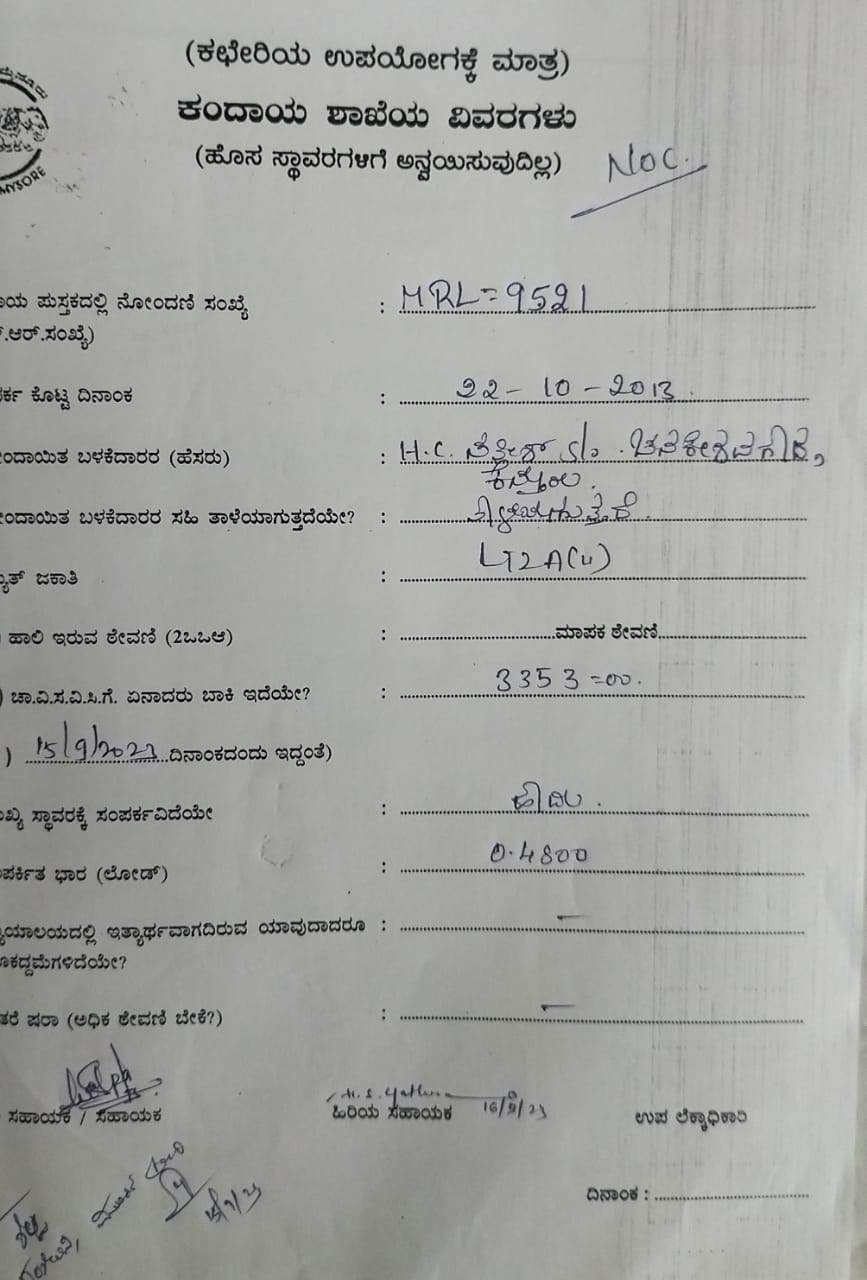 (ಕಛೇರಿಯ ಉಪಯೋಗಕ್ಕೆ ಮಾತ್ರ)
ಕಂದಾಯ ಶಾಖೆಯ ವಿವರಗಳು
(ಹೊಸ ಸ್ಥಾವರಗಳಿಗೆ ಅನ್ವಯಿಸುವುದಿಲ್ಲ) NOC.
MYSORE
ಾಯ ಪುಸ್ತಕದಲ್ಲಿ ನೋಂದಣಿ ಸಂಖ್ಯೆ : MRL=9521
.ಆರ್.ಸಂಖ್ಯೆ)
ರ್ಕ ಕೊಟ್ಟ ದಿನಾಂಕ : 22-10-2013.
ಂದಾಯಿತ ಬಳಕೆದಾರರ (ಹೆಸರು) : H.C. S/o.
ಂದಾಯಿತ ಬಳಕೆದಾರರ ಸಹಿ ತಾಳೆಯಾಗುತ್ತದೆಯೇ? :
ಯುತ್ ಜಕಾತಿ : LT2A(u)
ಹಾಲಿ ಇರುವ ಠೇವಣಿ (2ಒಒಆ) : ಮಾಪಕ ಠೇವಣಿ
) ಚಾ.ವಿ.ಸ.ವಿ.ಸಿ.ಗೆ. ಏನಾದರು ಬಾಕಿ ಇದೆಯೇ? : 3353=00.
) 15/9/2023 ದಿನಾಂಕದಂದು ಇದ್ದಂತೆ)
ಖ್ಯ ಸ್ಥಾವರಕ್ಕೆ ಸಂಪರ್ಕವಿದೆಯೇ : ಹೌದು.
ಪರ್ಕಿತ ಭಾರ (ಲೋಡ್) : 0.4800
ಯಾಯಾಲಯದಲ್ಲಿ ಇತ್ಯಾರ್ಥವಾಗದಿರುವ ಯಾವುದಾದರೂ : –
ೂಕದ್ದಮೆಗಳಿದೆಯೇ?
ತರೆ ಷರಾ (ಅಧಿಕ ಠೇವಣಿ ಬೇಕೆ?) : –
ಸಹಾಯಕ / ಸಹಾಯಕ ಹಿರಿಯ ಸಹಾಯಕ 16/9/23 ಉಪ ಲೆಕ್ಕಾಧಿಕಾರಿ
ದಿನಾಂಕ :